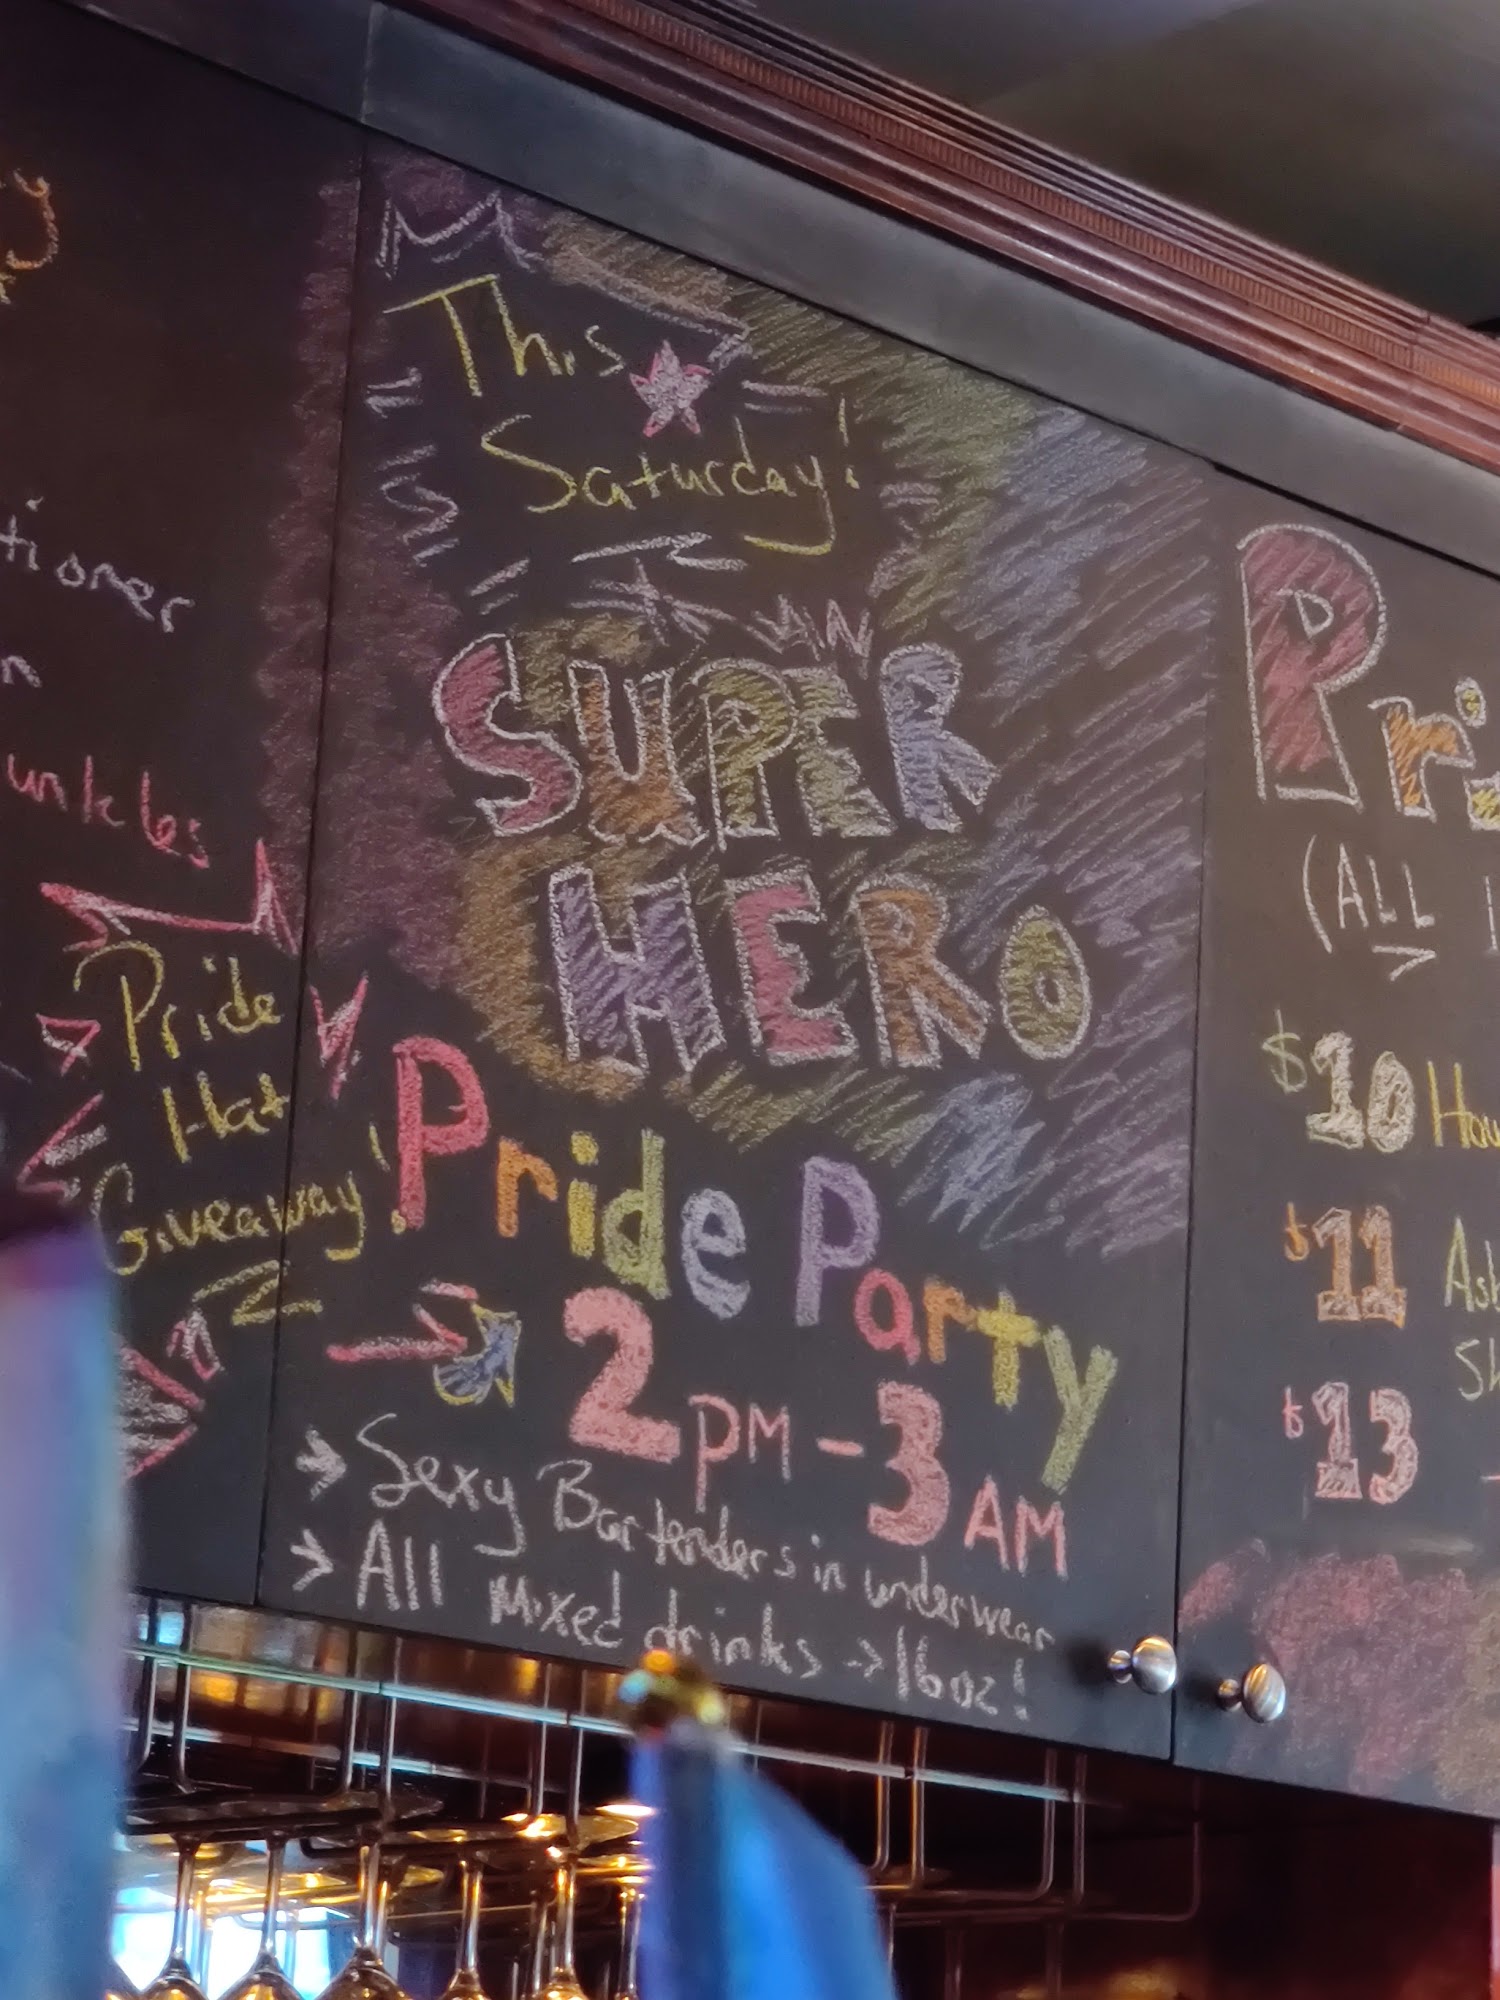 tioner
unkles
Pride
Hat
Giveaway!
This
Saturday!
SUPER
HERO
Pride Party
2PM - 3AM
→ Sexy Bartenders in underwear
→ All Mixed drinks → 16oz!
(ALL
$10
$11
$13